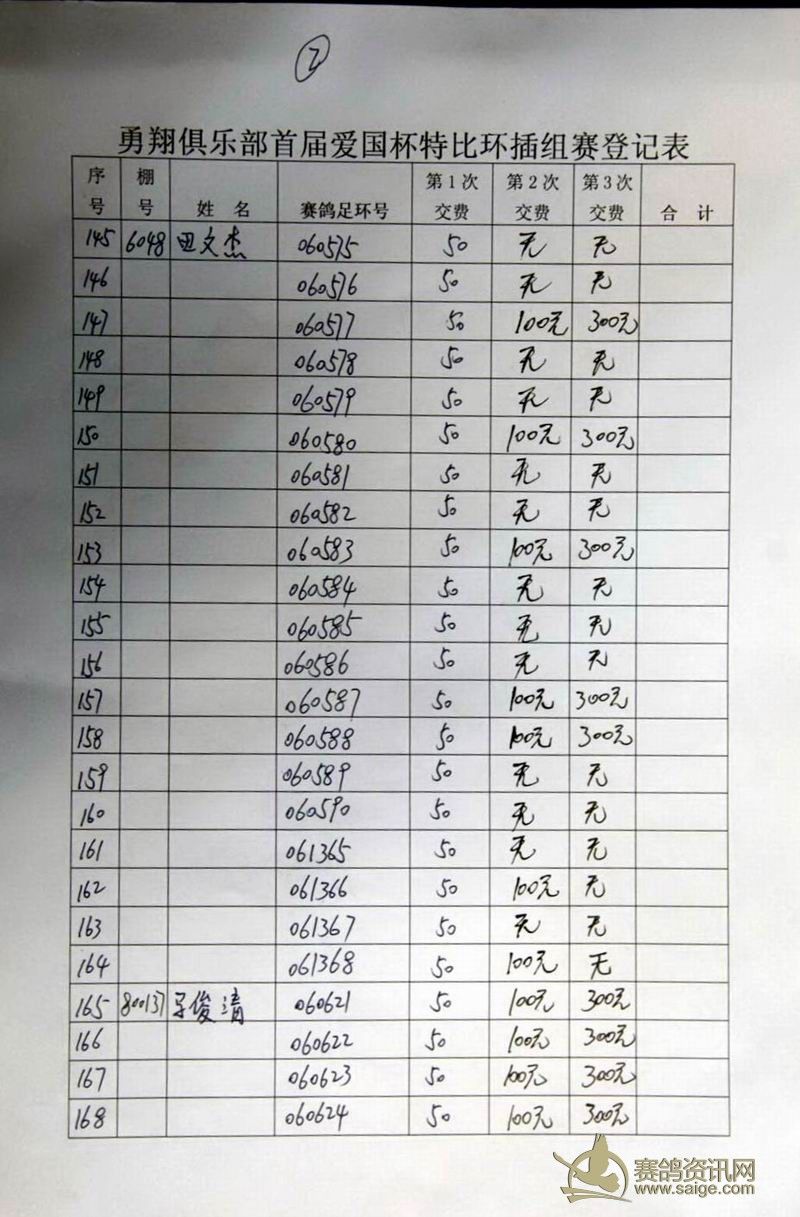 2
勇翔俱乐部首届爱国杯特比环插组赛登记表
序号 棚号 姓名 赛鸽足环号 第1次交费 第2次交费 第3次交费 合计
145 6048 田文杰 060575 50 无 无
146 060576 50 无 无
147 060577 50 100元 300元
148 060578 50 无 无
149 060579 50 无 无
150 060580 50 100元 300元
151 060581 50 无 无
152 060582 50 无 无
153 060583 50 100元 300元
154 060584 50 无 无
155 060585 50 无 无
156 060586 50 无 无
157 060587 50 100元 300元
158 060588 50 100元 300元
159 060589 50 无 无
160 060590 50 无 无
161 061365 50 无 无
162 061366 50 100元 无
163 061367 50 无 无
164 061368 50 100元 无
165 800137 俊清 060621 50 100元 300元
166 060622 50 100元 300元
167 060623 50 100元 300元
168 060624 50 100元 300元
赛鸽资讯网
www.saige.com